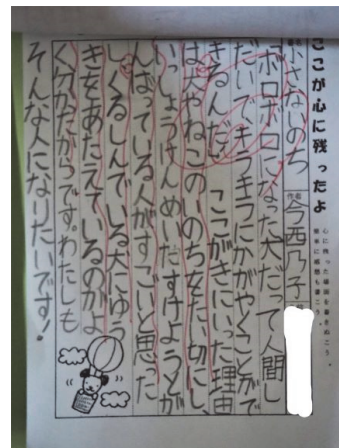 ここが心に残ったよ
心に残った場面を書きぬこう。
簡単に感想も書こう。
小さないのち
作者
今西乃子
「ボロボロになった犬だって人間し
だいで、キラキラにかがやくことがで
きるんだ」ここがきにいった理由
は犬やねこのいのちをたい切にし、
いっしょうけんめいたすけようとが
んばっている人がすごいと思った
し、くるしんでいる犬にゆう
きをあたえているのがよ
くわかたからです。わたしも
そんな人になりたいです!